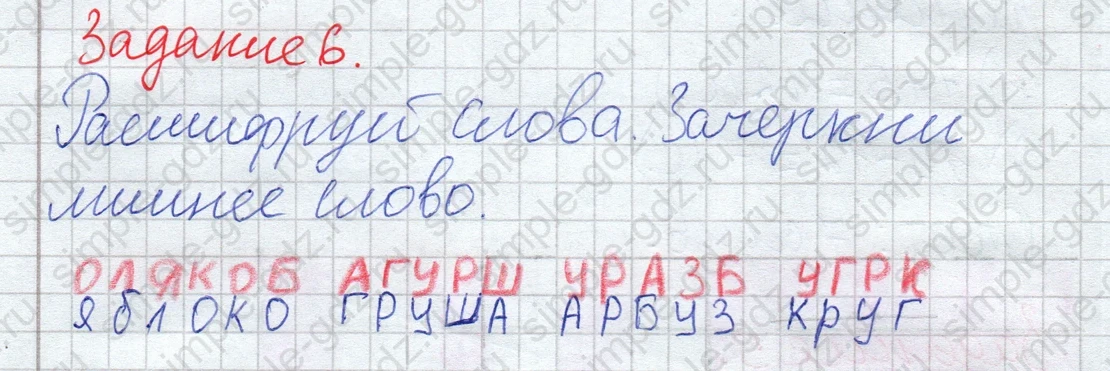 Задание 6.
Расшифруй слова. Зачеркни
лишнее слово.
ОЛЯКОБ АГУРШ УРАЗБ УГРК
ЯБЛОКО ГРУША АРБУЗ КРУГ